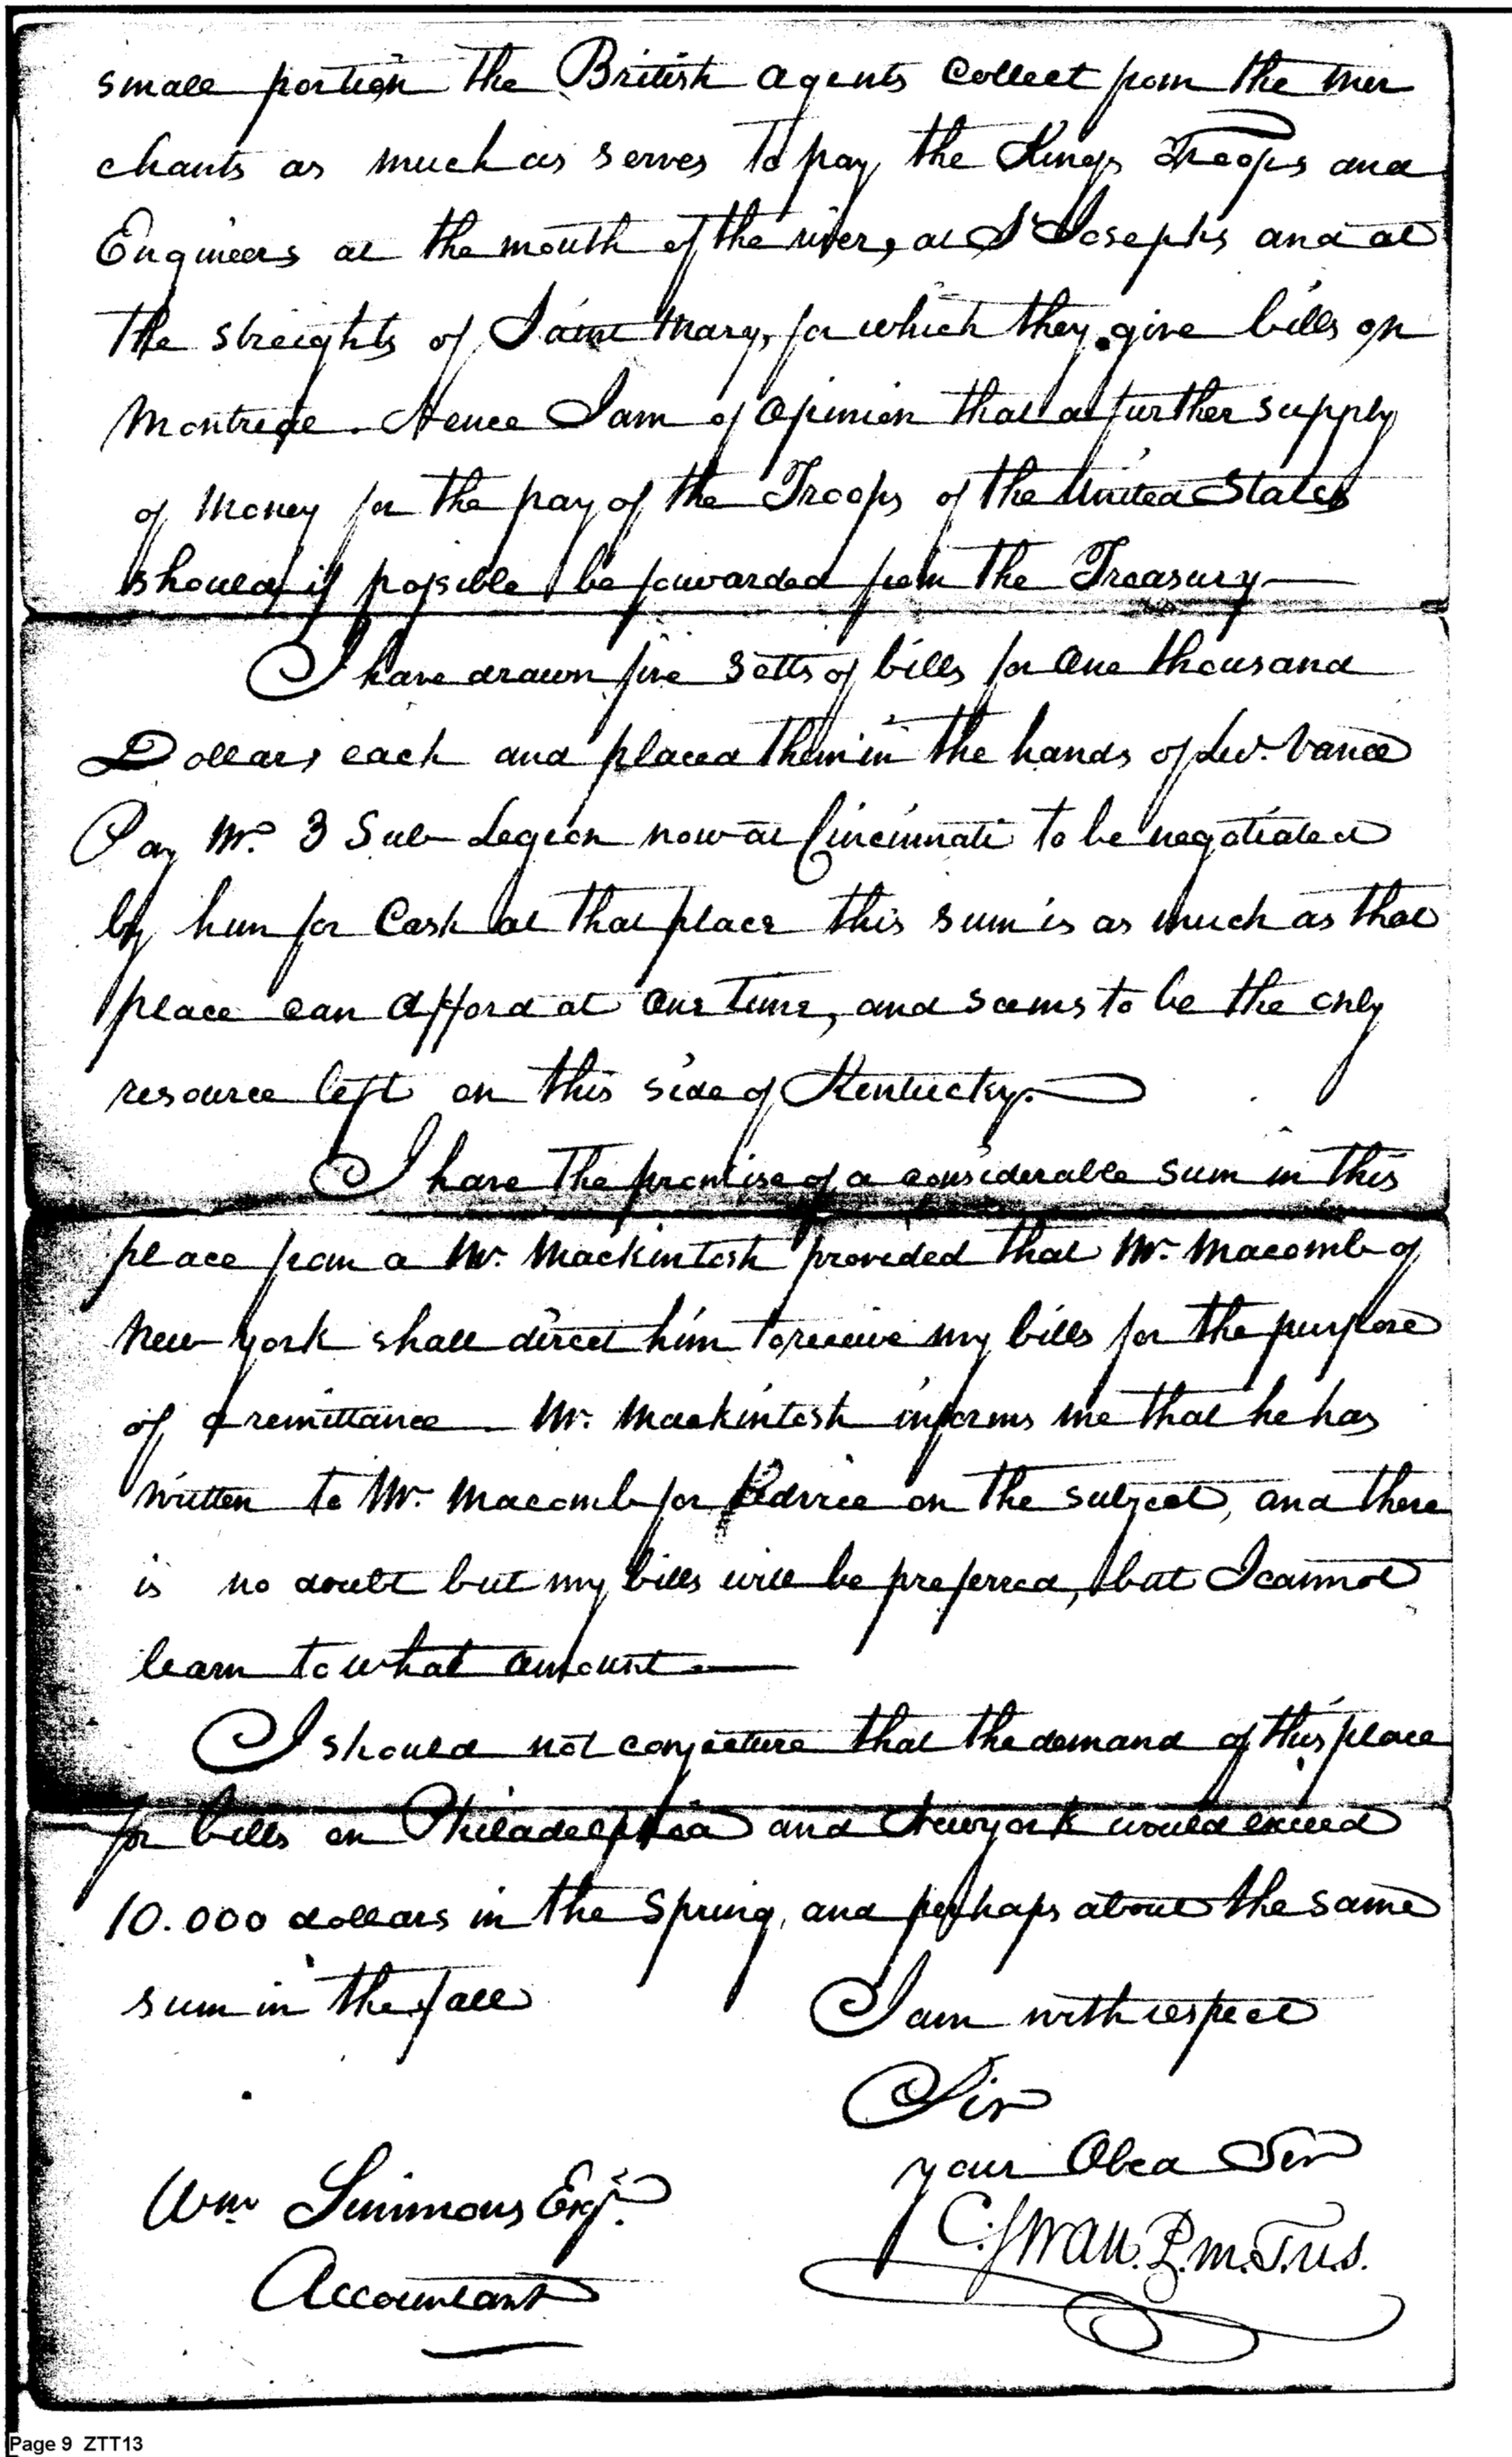 small portion the British agents Collect from the mer
chants as much as serves To pay the Kings Troops and
Engineers at the mouth of the river, at St Josephs and at
The streights of Saint Mary, for which they give bills on
Montreal. Hence I am of Opinion that a further supply
of Money for the pay of the Troops of the United States
should if possible be forwarded from the Treasury—
I have drawn five setts of bills for One thousand
Dollars each and placed them in the hands of Lw. Vance
Pay Mr 3 Sub Legion now at Cincinnati to be negotiated
by him for Cash at that place this sum is as much as that
place can afford at one time, and seems to be the only
resource left on this side of Kentucky.—
I have The promise of a considerable sum in this
place from a Mr. Mackintosh provided that Mr. Macomb of
New york shall direct him to receive my bills for the purpose
of a remittance. Mr. Mackintosh informs me that he has
written to Mr. Macomb for Advice on the subject, and there
is no doubt but my bills will be preferred, but I cannot
learn to what amount.—
I should not conjecture that the demand of this place
for bills on Philadelphia and Newyork would exceed
10.000 dollars in the Spring, and perhaps about the same
sum in the fall
I am with respect
Sir
your Obed Ser
Wm Simmons Esqr.
C: Swan. P.m.T.U.S.
Accountant
Page 9 ZTT13